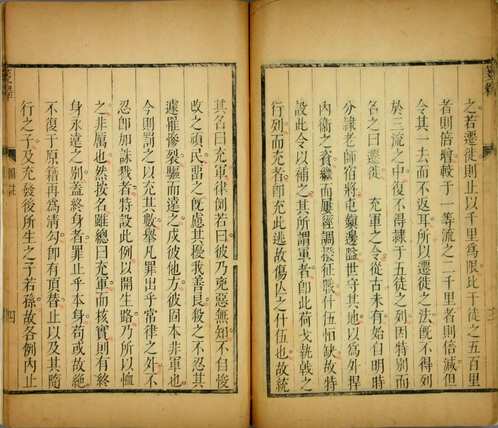 之若遷徙則止以千里爲限比于徒之五百里
者則倍增較于一等流之二千里者則倍減但
令其一去而不返耳所以遷徙之法旣不得列
於三流之中復不得隸于五徒之列因特別而
名之曰遷徙 充軍之令從古未有始自明時
分隸老師宿將屯嶺邊隘世守其地以爲外捍
內衞之資繼而屢經調撥征戰什伍怕缺故特
設此令以補之其所謂軍者卽此荷戈執戟之
行列而充者卽充此逃故傷亡之什伍也故統
其名曰充軍律例若曰彼乃兇惡無知不自悛
改之頑民畱之旣慮其擾我善良殺之不忍其
遽罹慘裂驅而遠之戍彼他方彼固本非軍也
今則罰之以充其數舉凡罪出乎常律之外不
忍卽加誅戮者特設此例以開生路乃所以恤
之非厲也然按名雖總曰充軍而核實則有終
身永遠之別蓋終身者罪止乎本身苟或故絕
不復于原籍再爲清勾卽有項替止以及其隨
行之子及充發後所生之子若孫故各例內止